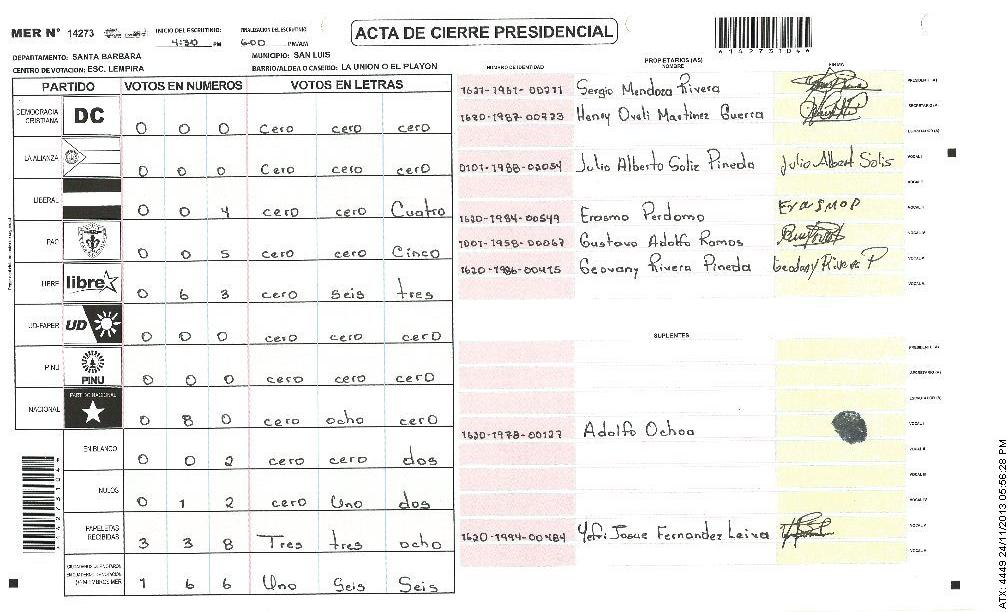 MER N° 14273
INICIO DEL ESCRUTINIO:
4:30 PM
FINALIZACION DEL ESCRUTINIO:
6:00 PM/AM
ACTA DE CIERRE PRESIDENCIAL
DEPARTAMENTO: SANTA BARBARA
MUNICIPIO: SAN LUIS
CENTRO DE VOTACION: ESC. LEMPIRA
BARRIO/ALDEA O CASERIO: LA UNION O EL PLAYON
PARTIDO VOTOS EN NUMEROS VOTOS EN LETRAS
DEMOCRACIA CRISTIANA DC 0 0 0 cero cero cero
LA ALIANZA 0 0 0 Cero cero cero
LIBERAL 0 0 4 cero cero Cuatro
PAC 0 0 5 cero cero Cinco
LIBRE libre 0 6 3 cero Seis tres
UD-FAPER UD 0 0 0 cero cero cero
PINU PINU 0 0 0 cero cero cero
NACIONAL PARTIDO NACIONAL 0 8 0 cero ocho cero
EN BLANCO 0 0 2 cero cero dos
NULOS 0 1 2 cero Uno dos
PAPELETAS RECIBIDAS 3 3 8 Tres tres ocho
1 6 6 Uno Seis Seis
NUMERO DE IDENTIDAD
PROPIETARIOS (AS)
NOMBRE
FIRMA
Sergio Mendoza Rivera PRESIDENTE (A)
Henry Oveli Martinez Guerra SECRETARIO (A)
ESCRUTADOR (A)
0101-1988-02054 Julio Alberto Soliz Pineda Julio Albert Solis VOCAL I
1620-1984-00549 Erasmo Perdomo Erasmo P
1001-1958-00067 Gustavo Adolfo Ramos
1620-1986-00415 Geovany Rivera Pineda Geodany Rivera P
SUPLENTES
PRESIDENTE (A)
SECRETARIO (A)
ESCRUTADOR (A)
1620-1978-00127 Adolfo Ochoa VOCAL I
VOCAL II
VOCAL III
VOCAL IV
1620-1994-00484 Yefri Josue Fernandez Leiva VOCAL V
ATX: 4449 24/11/2013 05:56:28 PM